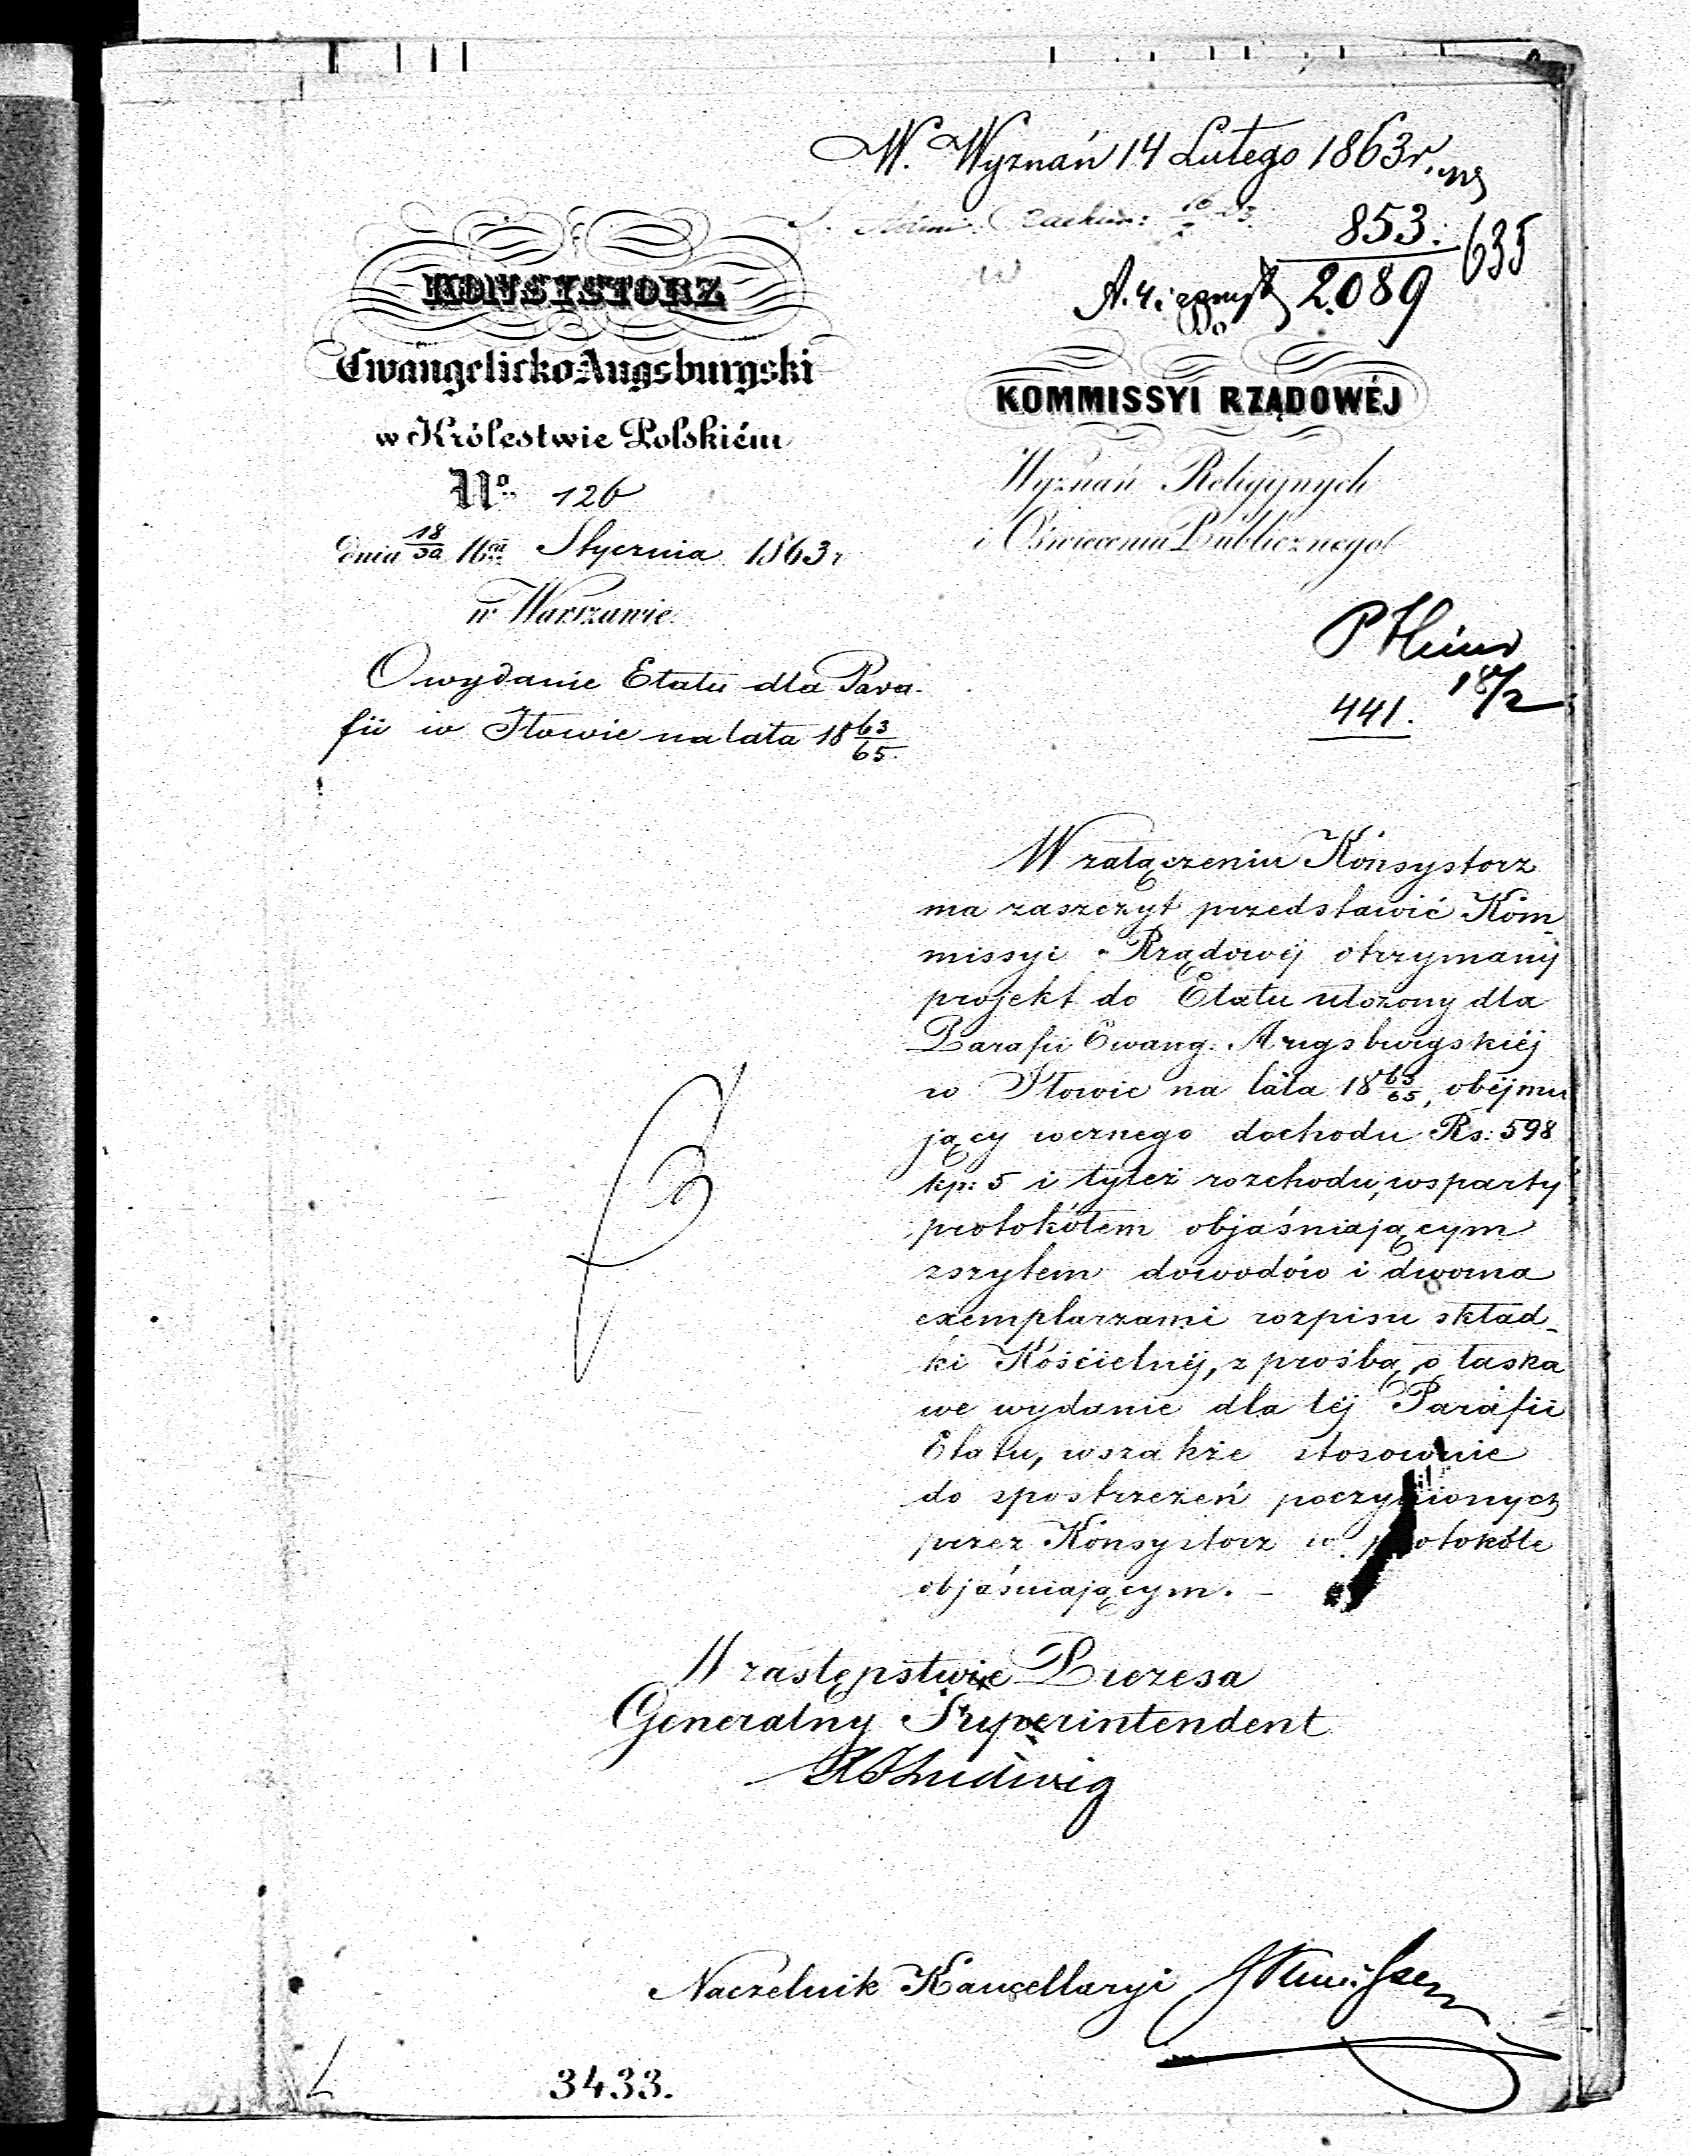 W. Wyznań 14 Lutego 1863 r.
853.
635
2089
KONSYSTORZ
Ewangelicko Augsburgski
w Królestwie Polskiém
No. 126
dnia 18/30 Stycznia 1863 r
w Warszawie.
O wydanie Etatu dla Para-
fii w Iłowie na lata 18 63/65.
Do
KOMMISSYI RZĄDOWÉJ
Wyznań Religijnych
i Oświecenia Publicznego
18/2
441.
W załączeniu Konsystorz
ma zaszczyt przedstawić Kom-
missyi Rządowéj otrzymany
projekt do Etatu ułożony dla
Parafii Ewang. Augsburgskiéj
w Iłowie na lata 18 63/65, obejmu
jący rocznego dochodu Rs: 598
kp: 5 i tyleż rozchodu, wsparty
protokółem objaśniającym
zszytem dowodów i dwoma
exemplarzami rozpisu skład-
ki Kościelnéj, z prośbą o łaska
we wydanie dla téj Parafii
Etatu, wszakże stosownie
do spostrzeżeń poczynionych
przez Konsystorz w protokóle
objaśniającym. -
W zastępstwie Prezesa
Generalny Superintendent
Ludwig
Naczelnik Kancellaryi
3433.